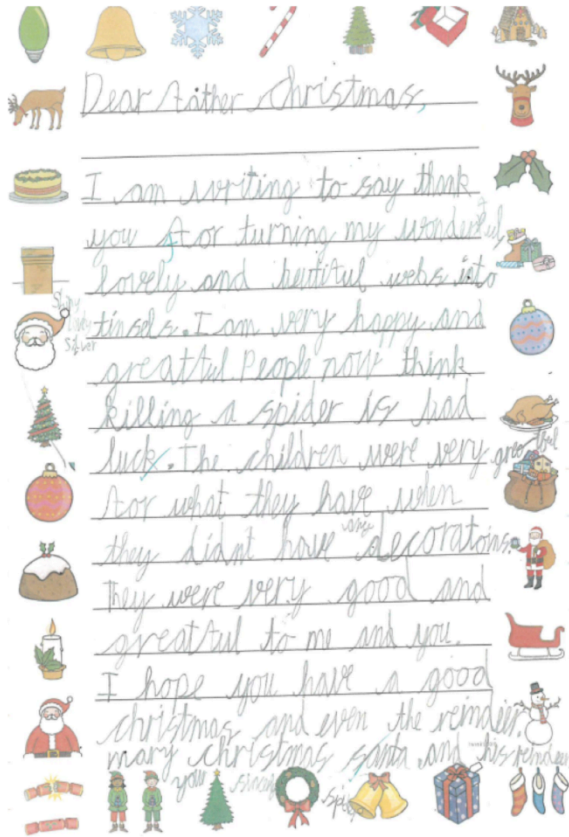 Dear Father Christmas,
I am writing to say think
you for turning my wonderful
lovely and beutiful webs into
Shiny
Silver
tinsels. I am very happy and
greatful People now think
killing a spider is bad
luck. The children were very greatful
for what they have when
they didnt have any decoratoins
They were very good and
greatful to me and you.
I hope you have a good
christmas and even the reindeer.
mary christmas santa and his reindeer
you